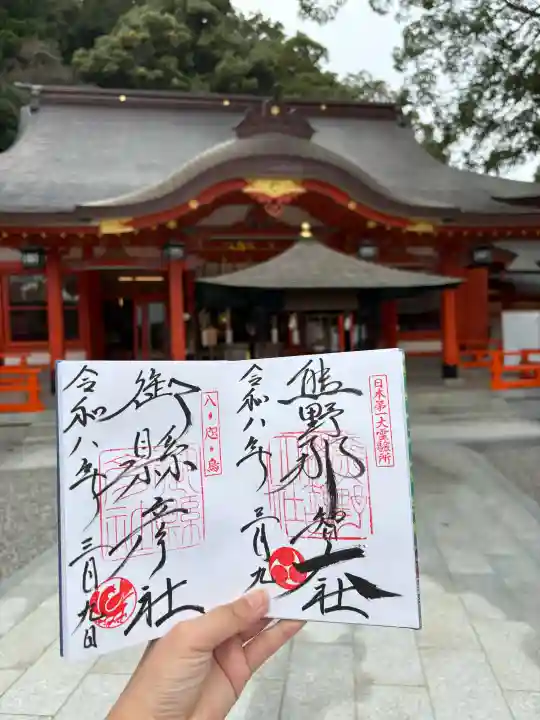 日本第一大霊験所
熊野那智大社
令和八年 三月九
八・咫・烏
御縣彦社
令和八年 三月九日